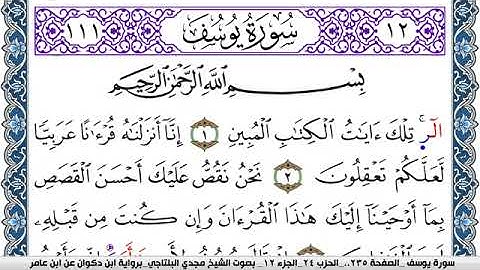 ١١١ سُورَةُ يُوسُفَ ١٢
بِسْمِ اللَّهِ الرَّحْمَٰنِ الرَّحِيمِ
الٓر تِلْكَ ءَايَٰتُ الْكِتَٰبِ الْمُبِينِ ١ إِنَّا أَنزَلْنَٰهُ قُرْءَٰنًا عَرَبِيًّا
لَعَلَّكُمْ تَعْقِلُونَ ٢ نَحْنُ نَقُصُّ عَلَيْكَ أَحْسَنَ الْقَصَصِ
بِمَا أَوْحَيْنَا إِلَيْكَ هَٰذَا الْقُرْءَانَ وَإِن كُنتَ مِن قَبْلِهِ
سورة يوسف _الصفحة ٢٣٥.._الحزب ٢٤_ الجزء ١٢_ بصوت الشيخ مجدي البلتاجي_برواية ابن ذكوان عن ابن عامر